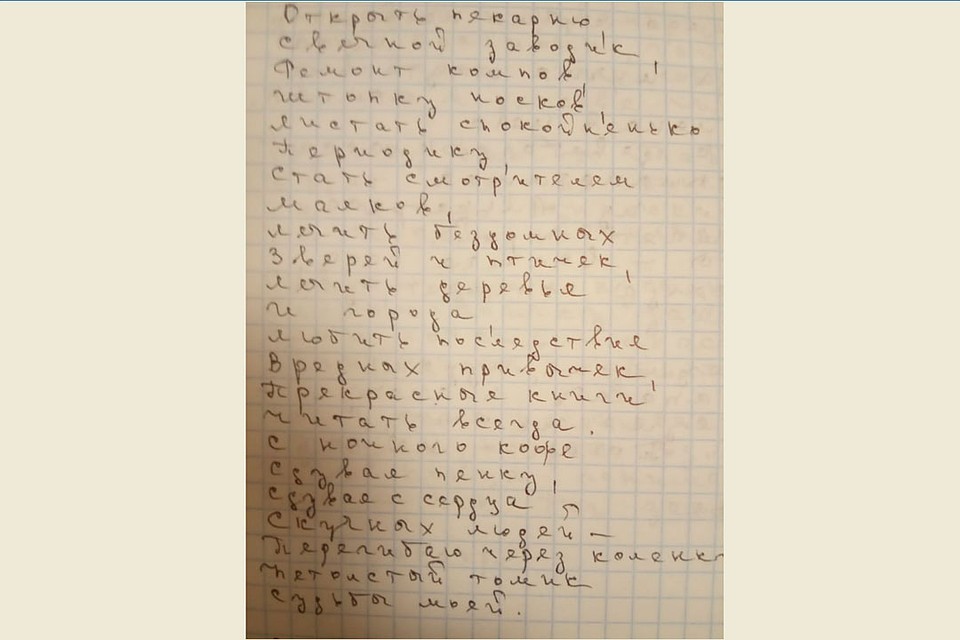 Открыть пекарню
свечной заводик,
Ремонт компов,
штопку носков,
листать спокойненько
периодику,
стать смотрителем
маяков,
лечить бездомных
зверей и птичек,
лечить деревья
и города
любить последствия
вредных привычек,
прекрасные книги
читать всегда.
с ночного кофе
сдувая пенку,
сдувая с сердца
скучных людей —
перегибаю через коленку
нетолстый томик
судьбы моей.